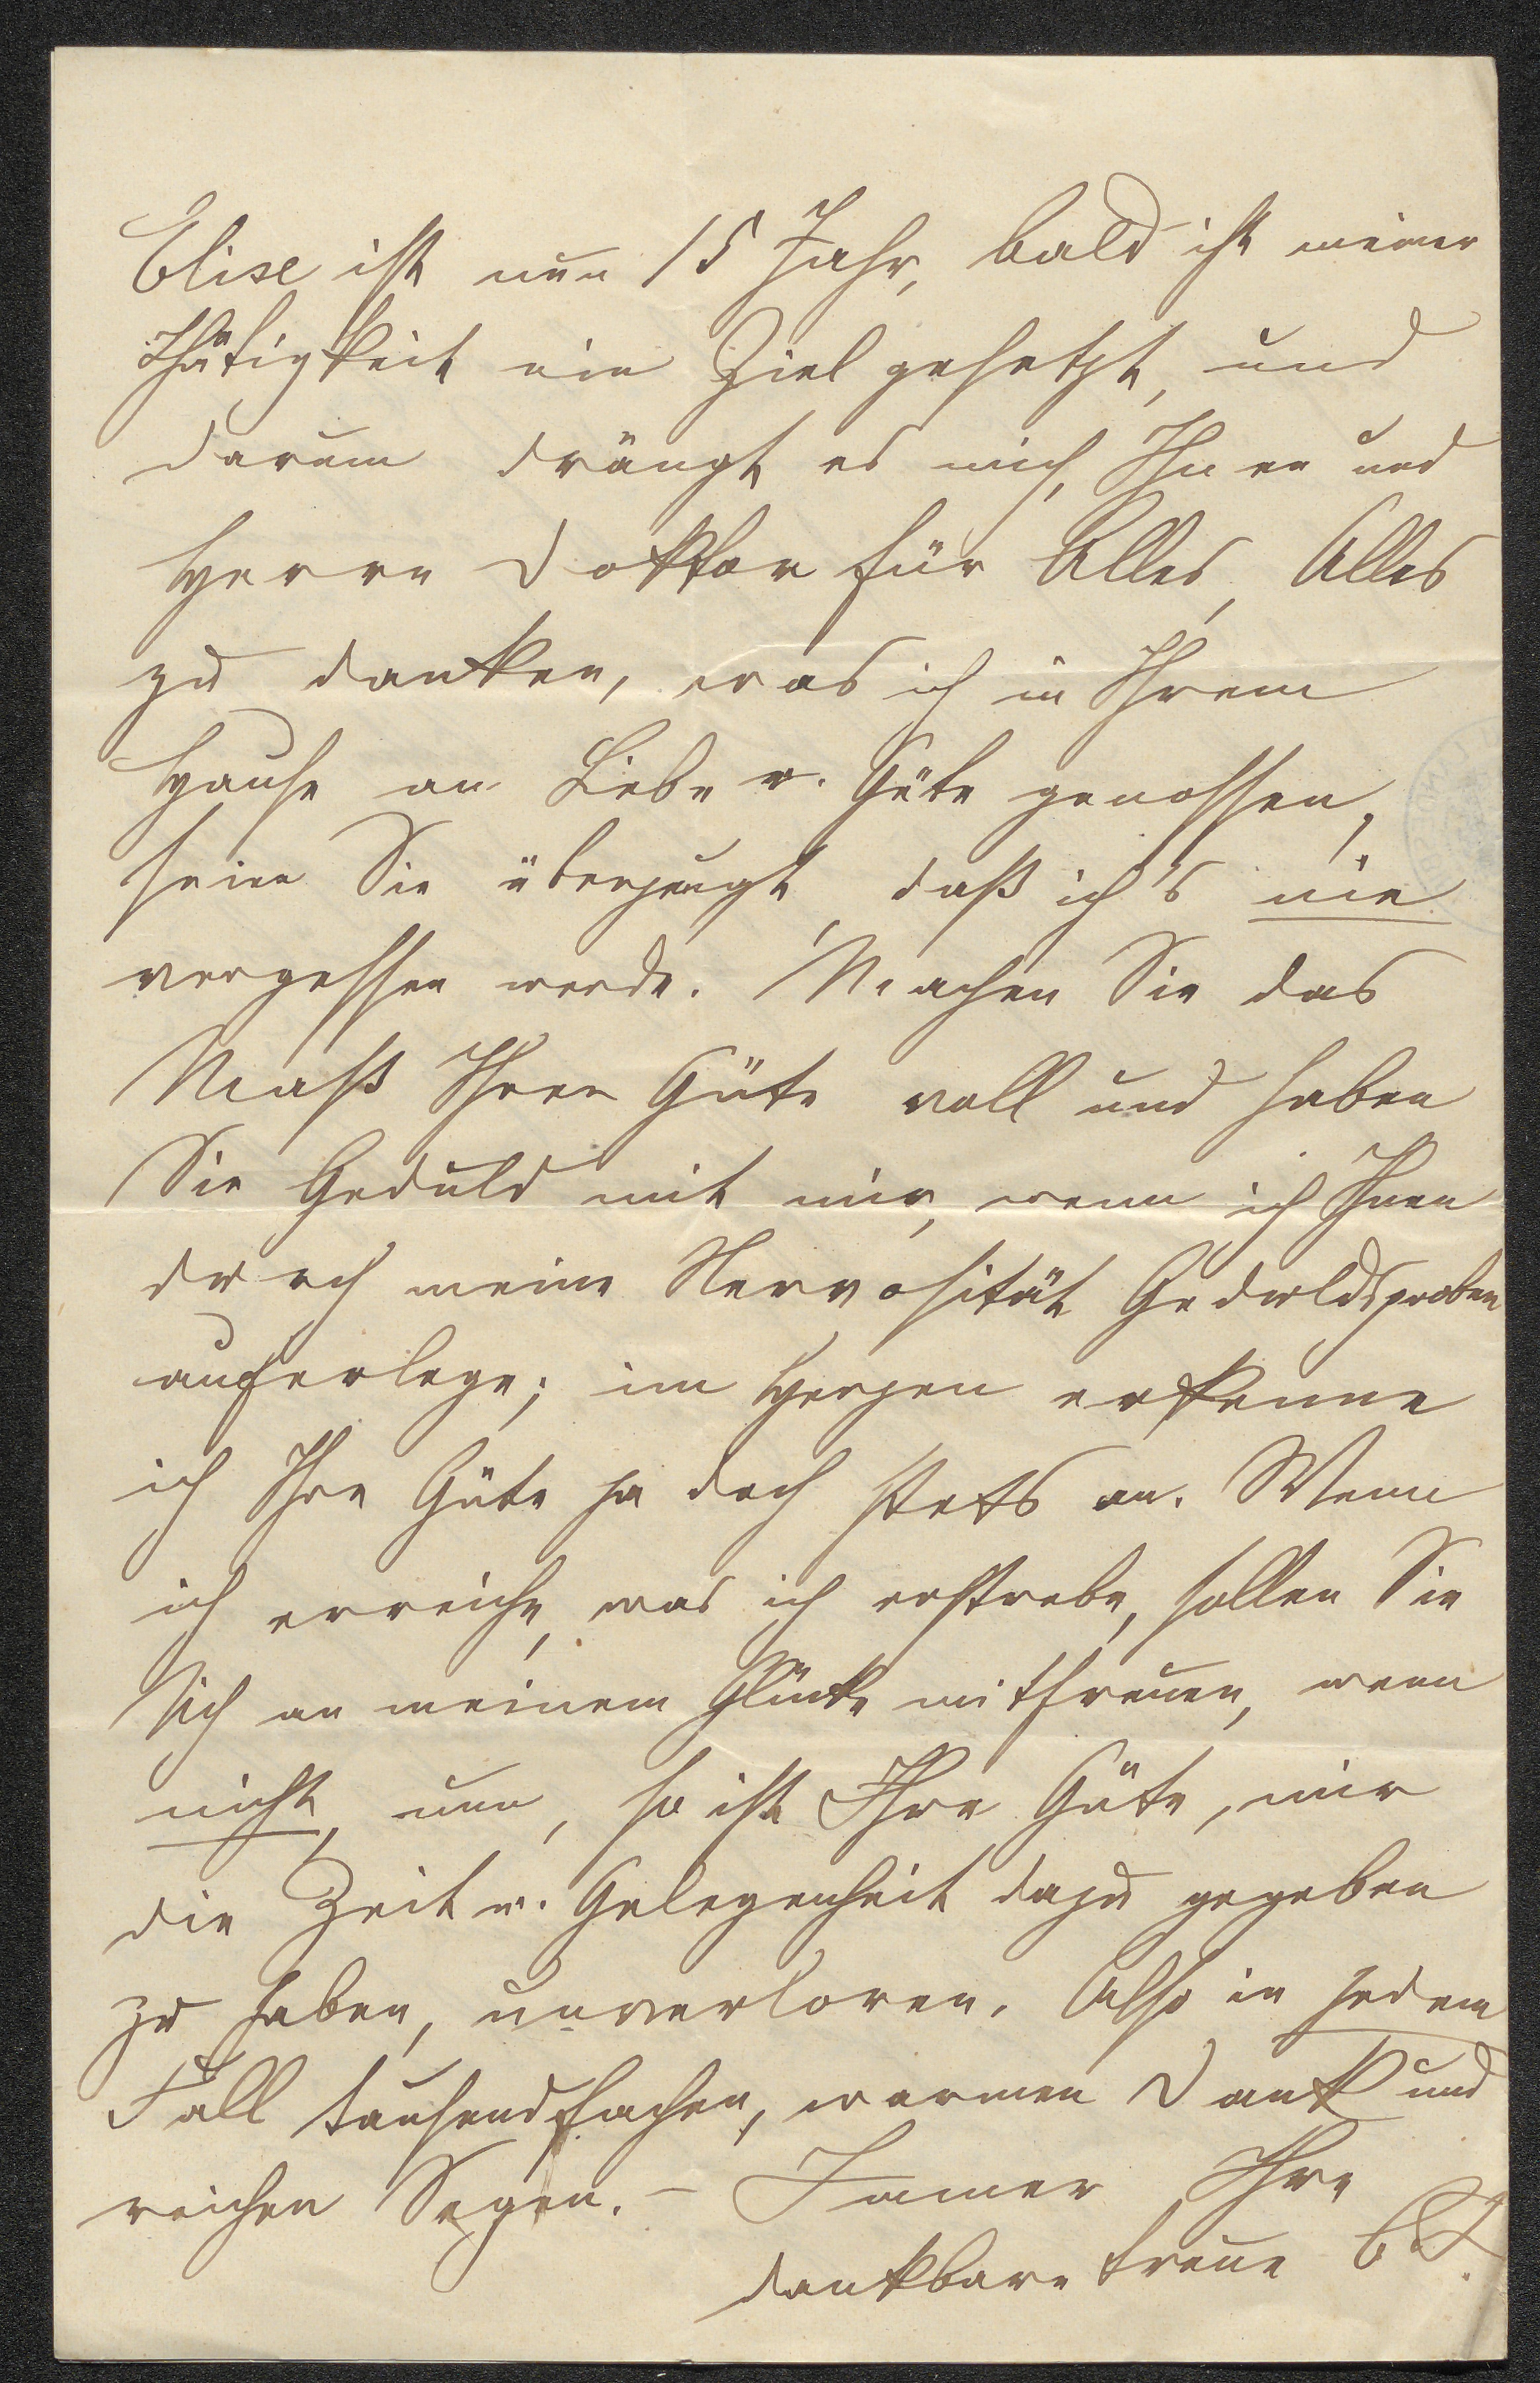 Elise ist nun 15 Jahr, bald ist meiner
Thätigkeit ein Ziel gesetzt, und
darum drängt es mich, Ihnen und
Herrn Doktor für Alles, Alles
zu danken, was ich in Ihrem
Hause an Liebe u. Güte genossen,
seien Sie überzeugt, daß ich's nie
vergessen werde. Machen Sie das
Maß Ihrer Güte voll und haben
Sie Geduld mit mir, wenn ich Ihnen
durch meine Nervosität Geduldsproben
auferlege; im Herzen erkenne
ich Ihre Güte ja doch stets an. Wenn
ich erreiche, was ich erstrebe, sollen Sie
Sich an meinem Glücke mitfreuen, wenn
nicht, nun, so ist Ihre Güte, mir
die Zeit u. Gelegenheit dazu gegeben
zu haben, unverloren. Also in jedem
Fall tausendfachen, warmen Dank und
reichen Segen. – Immer Ihre
dankbare treue